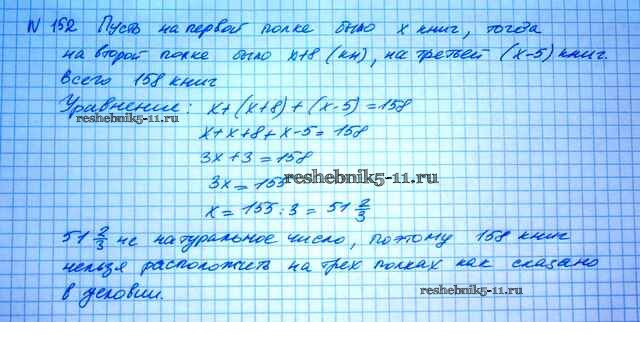 N 152 Пусть на первой полке было x книг, тогда
на второй полке было x+8 (кн), на третьей (x-5) книг.
Всего 158 книг
Уравнение: x+(x+8)+(x-5)=158
reshebnik5-11.ru
x+x+8+x-5=158
3x+3=158
3x=155
reshebnik5-11.ru
x=155:3=51 2/3
51 2/3 не натуральное число, поэтому 158 книг
нельзя расположить на трех полках как сказано
в условии.
reshebnik5-11.ru